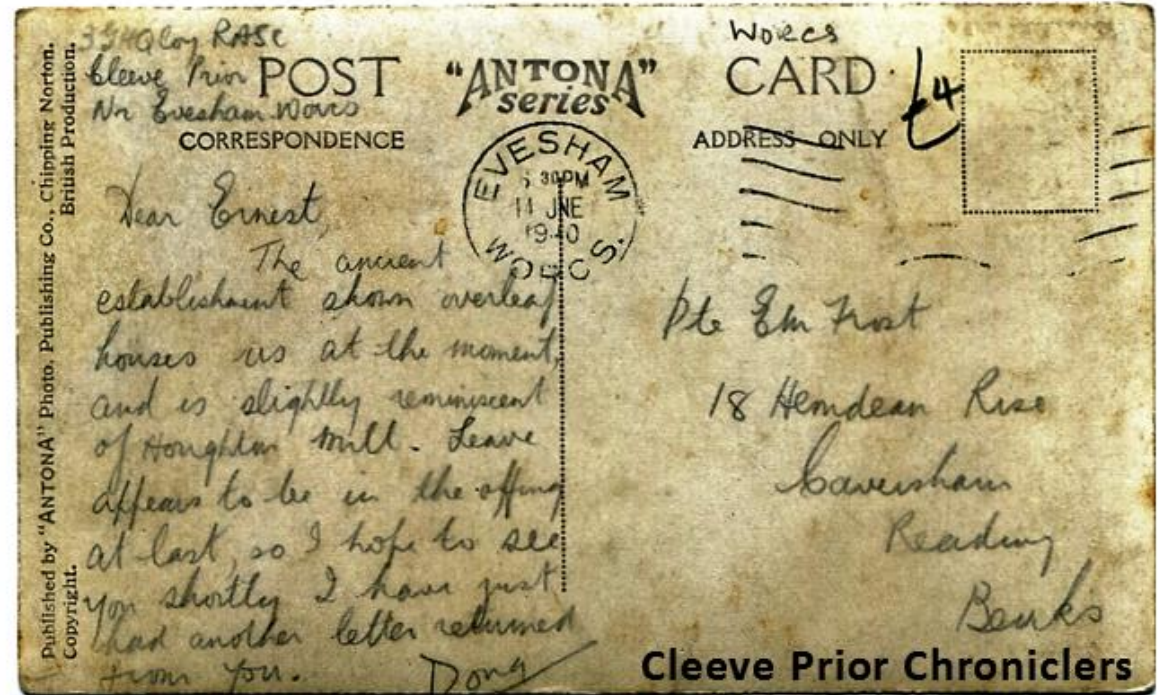 Published by "ANTONA" Photo. Publishing Co., Chipping Norton.
Copyright. British Production.
Coy RASC
Cleeve Prior
Nr Evesham Worcs
POST CARD
"ANTONA"
series
CORRESPONDENCE
ADDRESS ONLY
Worcs
£4
EVESHAM
30PM
11 JNE
1940
WORCS.
Dear Ernest,
The ancient
establishment shown overleaf
houses us at the moment,
and is slightly reminiscent
of Houghton Mill. Leave
appears to be in the offing
at last, so I hope to see
you shortly I have just
had another letter returned
from you. Doug
Pte Frost
18 Hemdean Rise
Caversham
Reading
Berks
Cleeve Prior Chroniclers